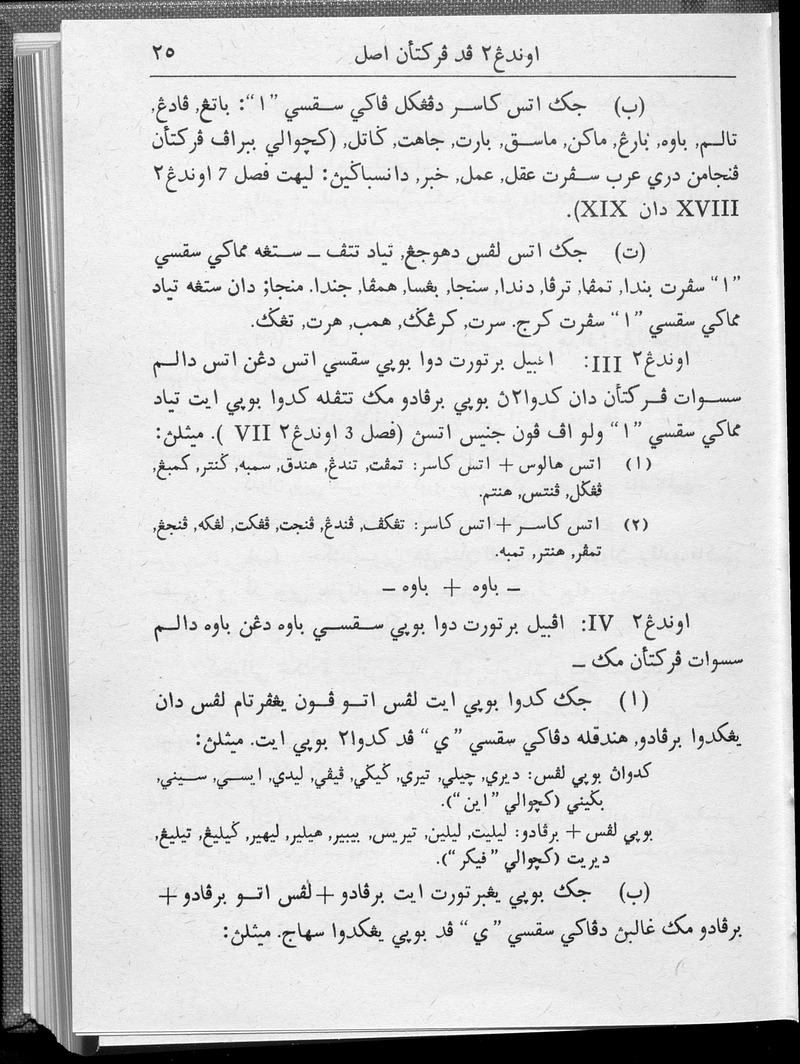 اوندڠ٢ ڤد ڤركتأن اصل ٢٥
(ب) جك اتس كاسر دڤڠكل ڤاكي سقسي ”ا“: باتڠ, ڤادڠ,
تالم, باوه, بارڠ, ماكن, ماسق, بارت, جاهت, ݢاتل, (كچوالي ببراڤ ڤركتأن
ڤنجامن دري عرب سڤرت عقل, عمل, خبر, دانسباݢيڽ: ليهت فصل 7 اوندڠ٢
XVIII دان XIX).
(ت) جك اتس لڤس دهوجڠ, تياد تتڤ ــ ستڠه مماكي سقسي
”ا“ سڤرت بندا, تمڤا, ترڤا, دندا, سنجا, بڠسا, همڤا, جندا. منجا; دان ستڠه تياد
مماكي سقسي ”ا“ سڤرت كرج. سرت, كرڠݢ, همب, هرت, تڠݢ.
اوندڠ٢ III: اڤبيل برتورت دوا بوڽي سقسي اتس دڠن اتس دالم
سسوات ڤركتأن دان كدوا٢ڽ بوڽي برڤادو مك تتڤله كدوا بوڽي ايت تياد
مماكي سقسي ”ا“ ولو اڤ ڤون جنيس اتسڽ (فصل 3 اوندڠ٢ VII ). ميثلڽ:
(١) اتس هالوس + اتس كاسر: تمڤت, تندڠ, هندق, سمبه, ݢنتر, كمبڠ,
ڤڠݢل, ڤنتس, هنتم.
(٢) اتس كاسر + اتس كاسر: تڠكڤ, ڤندڠ, ڤنجت, ڤڠكت, لڠكه, ڤنجڠ,
تمڤر, هنتر, تمبه.
ــ باوه + باوه ــ
اوندڠ٢ IV: اڤبيل برتورت دوا بوڽي سقسي باوه دڠن باوه دالم
سسوات ڤركتأن مك ــ
(ا) جك كدوا بوڽي ايت لڤس اتو ڤون يڠڤرتام لڤس دان
يڠكدوا برڤادو, هندقله دڤاكي سقسي ”ي“ ڤد كدوا٢ بوڽي ايت. ميثلڽ:
كدواڽ بوڽي لڤس: ديري, چيلي, تيري, ݢيݢي, ڤيڤي, ليدي, ايسي, سيني,
بݢيني (كچوالي ”اين“).
بوڽي لڤس + برڤادو: ليليت, ليلين, تيريس, بيبير, هيلير, ليهير, ݢيليڠ, تيليڠ,
ديريت (كچوالي ”فيكر“).
(ب) جك بوڽي يڠبرتورت ايت برڤادو + لڤس اتو برڤادو +
برڤادو مك غالبڽ دڤاكي سقسي ”ي“ ڤد بوڽي يڠكدوا سهاج. ميثلڽ: